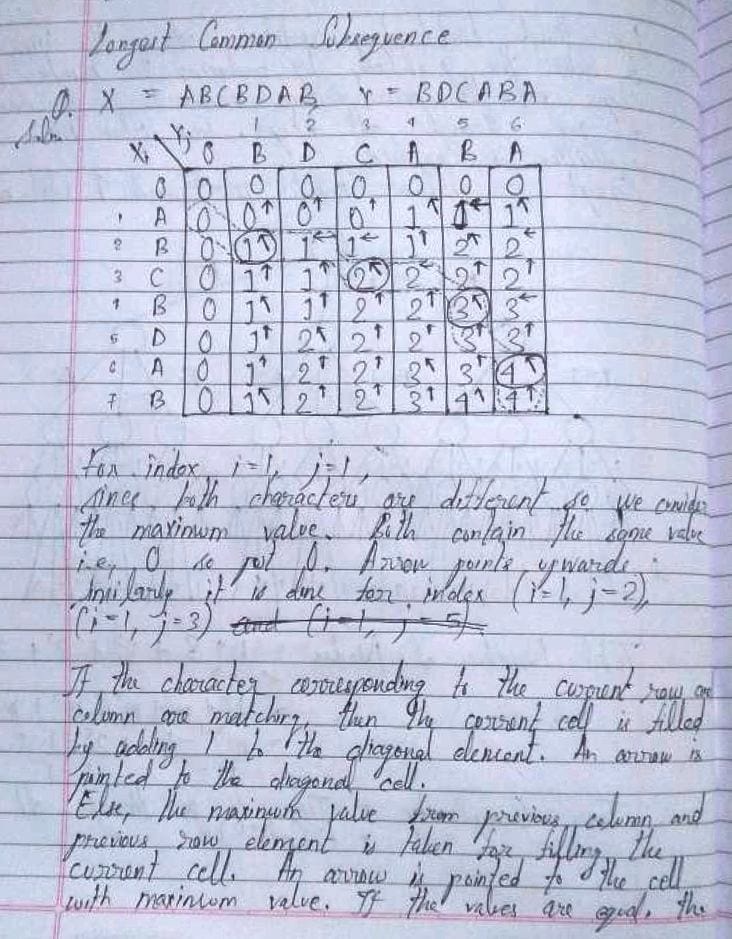 Longest Common Subsequence
Q. X = ABCBDAB Y = BDCABA
Soln 1 2 3 4 5 6
Xi Yj 0 B D C A B A
0 0 0 0 0 0 0 0
1 A 0 0↑ 0↑ 0↑ 1↖ 1← 1↖
2 B 0 1↖ 1← 1← 1↑ 2↖ 2←
3 C 0 1↑ 1↑ 2↖ 2← 2↑ 2↑
4 B 0 1↖ 1↑ 2↑ 2↑ 3↖ 3←
5 D 0 1↑ 2↖ 2↑ 2↑ 3↑ 3↑
6 A 0 1↑ 2↑ 2↑ 3↖ 3↑ 4↖
7 B 0 1↖ 2↑ 2↑ 3↑ 4↖ 4↑
For index i=1, j=1,
since both characters are different so we consider
the maximum value. Both contain the same value
i.e, 0 so put 0. Arrow points upwards.
Similarly it is done for index (i=1, j=2),
(i=1, j=3) and (i=1, j=5)
If the character corresponding to the current row and
column are matching, then the current cell is filled
by adding 1 to the diagonal element. An arrow is
pointed to the diagonal cell.
Else, the maximum value from previous column and
previous row element is taken for filling the
current cell. An arrow is pointed to the cell
with maximum value. If the values are equal, the